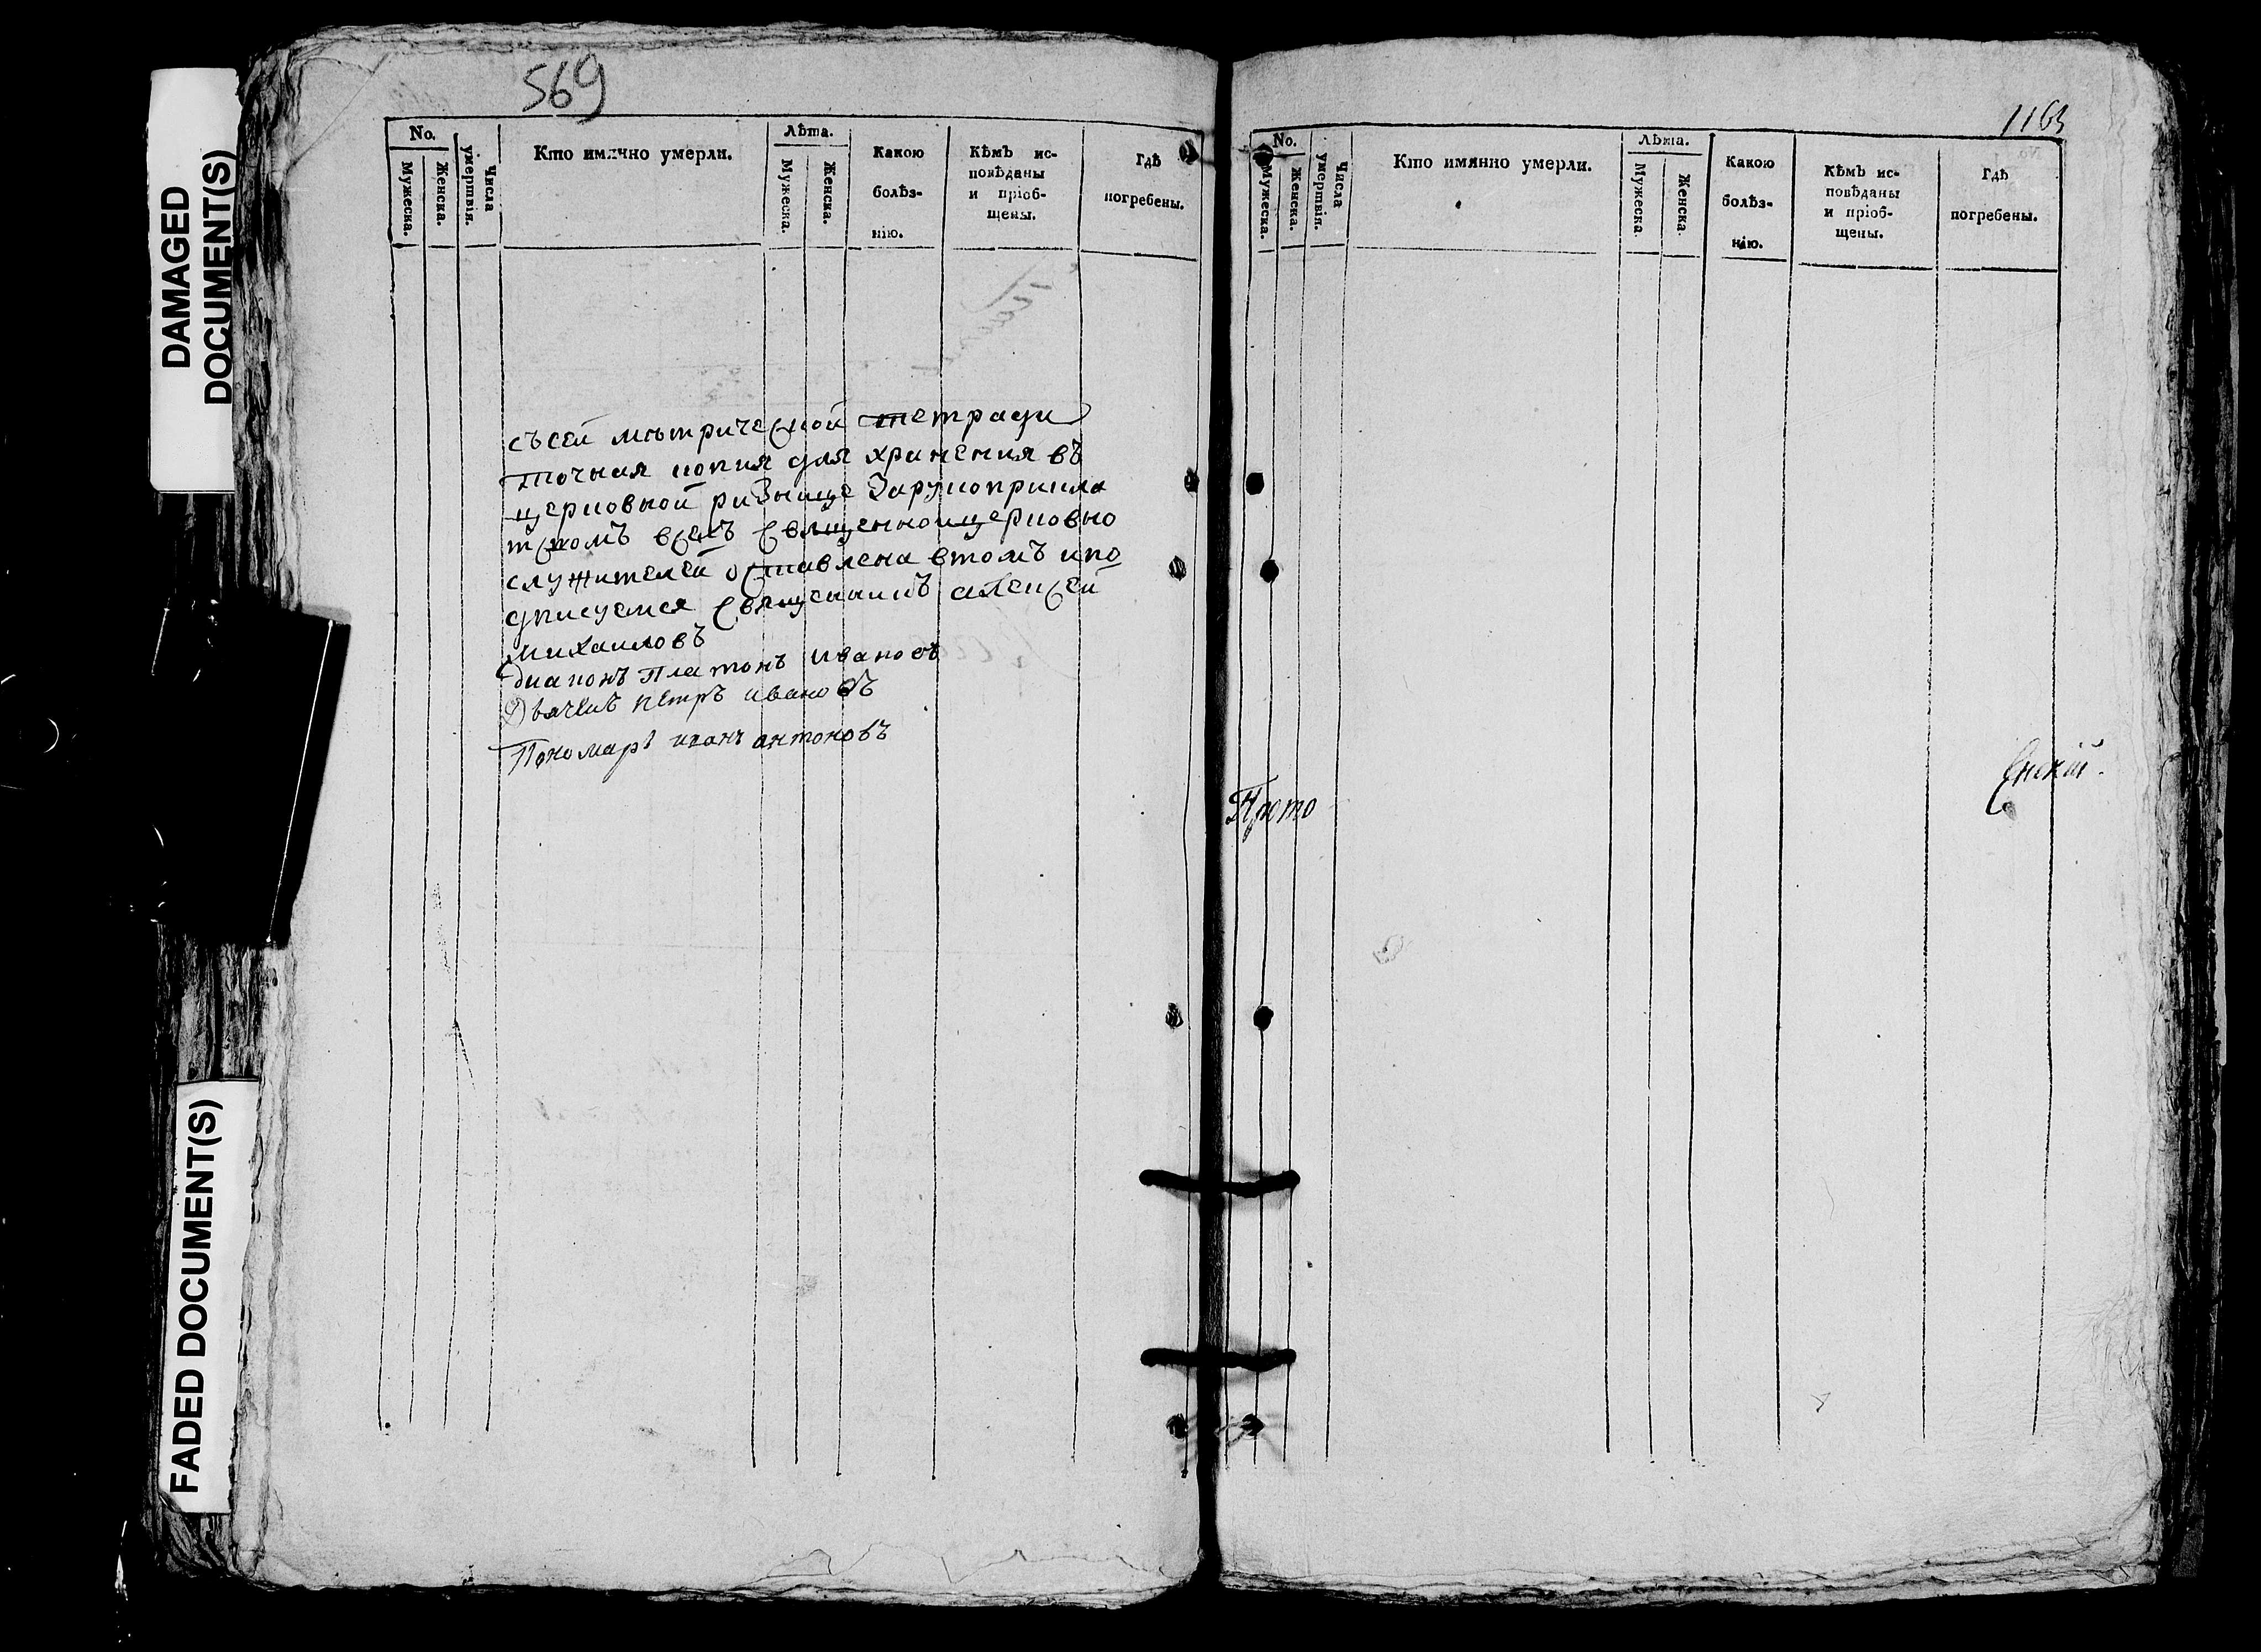 DAMAGED
DOCUMENT(S)
FADED DOCUMENT(S)
569
No.
Мужеска.
Женска.
Числа
умертвія.
Кто имянно умерли.
Лѣта.
Мужеска.
Женска.
Какою
болѣз-
нію.
Кѣмъ ис-
повѣданы
и пріоб-
щены.
Гдѣ
погребены.
съсей метрической тетради
точная копия для хранения въ
церковной ризнице Зарукоприкла
тством всехъ священноцерковно
служителей оставлена втомъ ипо
дписуемся священникъ алексей
михаиловъ
диаконъ Платонъ Ивановъ
Дьячекъ петръ ивановъ
Пономарь иванъ антоновъ
1163
No.
Мужеска.
Женска.
Числа
умертвія.
Кто имянно умерли.
Лѣта.
Мужеска.
Женска.
Какою
болѣз-
нію.
Кѣмъ ис-
повѣданы
и пріоб-
щены.
Гдѣ
погребены.
Прото